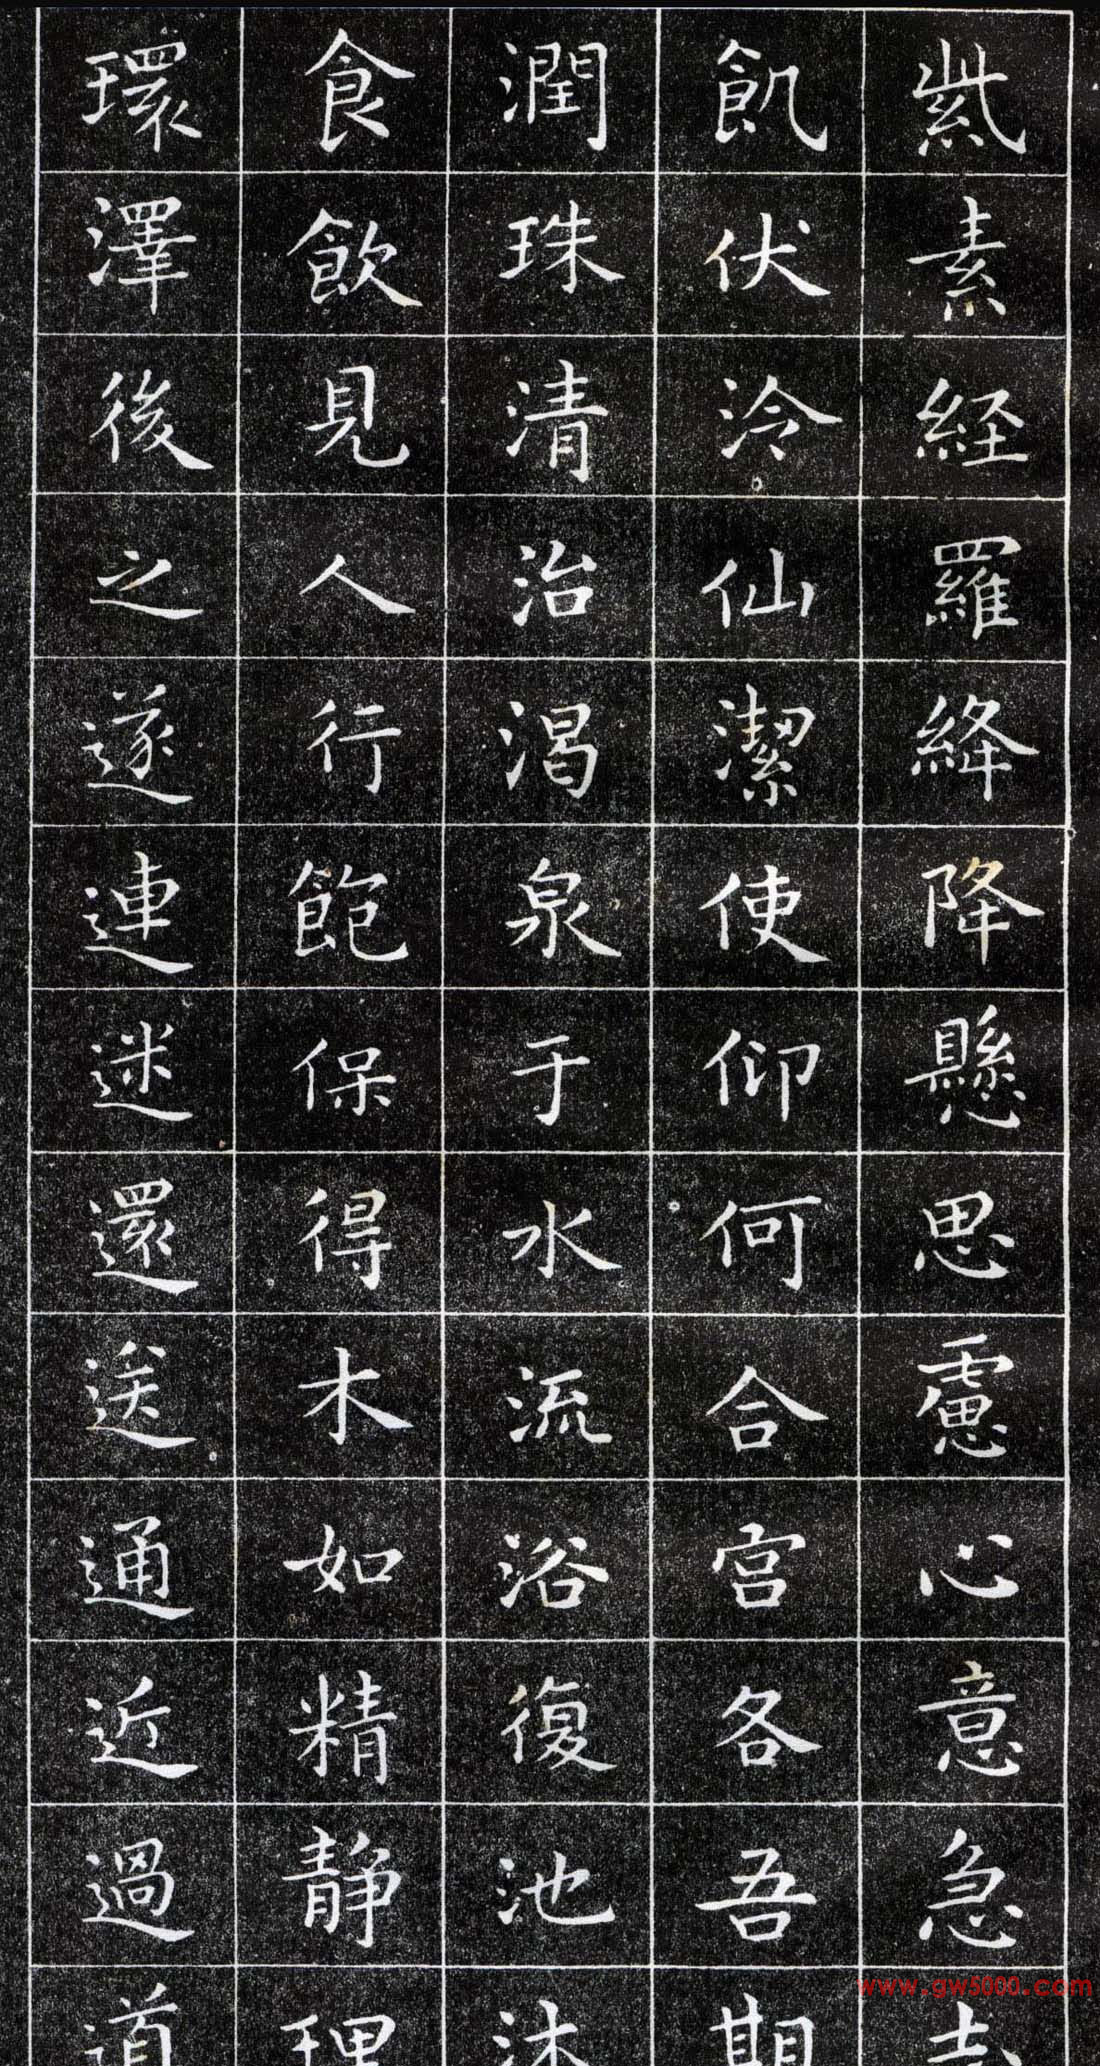 紫素経羅絳降懸思慮心意急
飢伏泠仙潔使仰何合宫各吾期
潤珠清治渴泉于水流浴復池沐
食飲見人行飽保得木如精静理
環澤後之遂連迷還送通近過道
www.gw5000.com